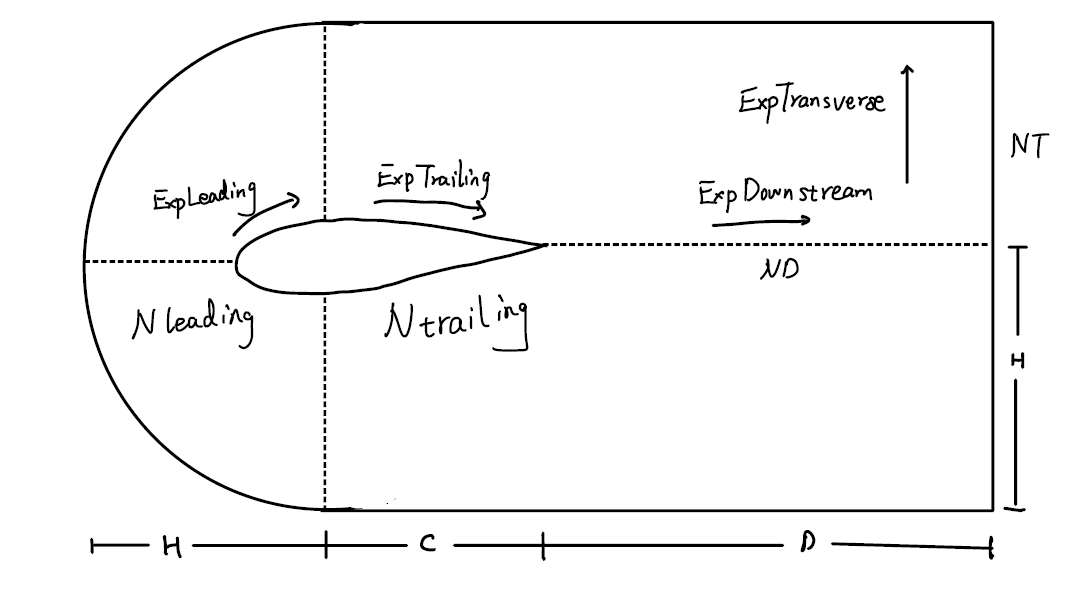 ExpTransverse
NT
ExpTrailing
ExpLeading
ExpDownstream
ND
Nleading
Ntrailing
H
H
C
D